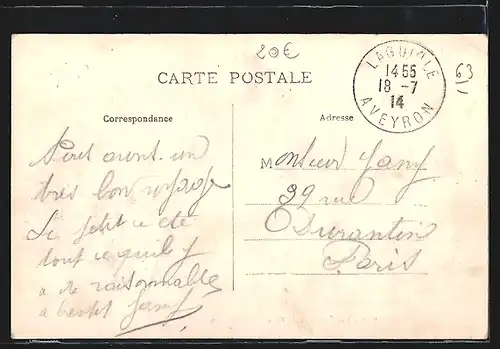 20€
CARTE POSTALE
LAGUIOLE
1455
18 -7
14
AVEYRON
63
Correspondance
Adresse
avons un
très bon voyage
Le petit a été
tout ce qu'il y
a de raisonnable
a bientot Jamy
Monsieur Jamy
39 rue
Durantin
Paris